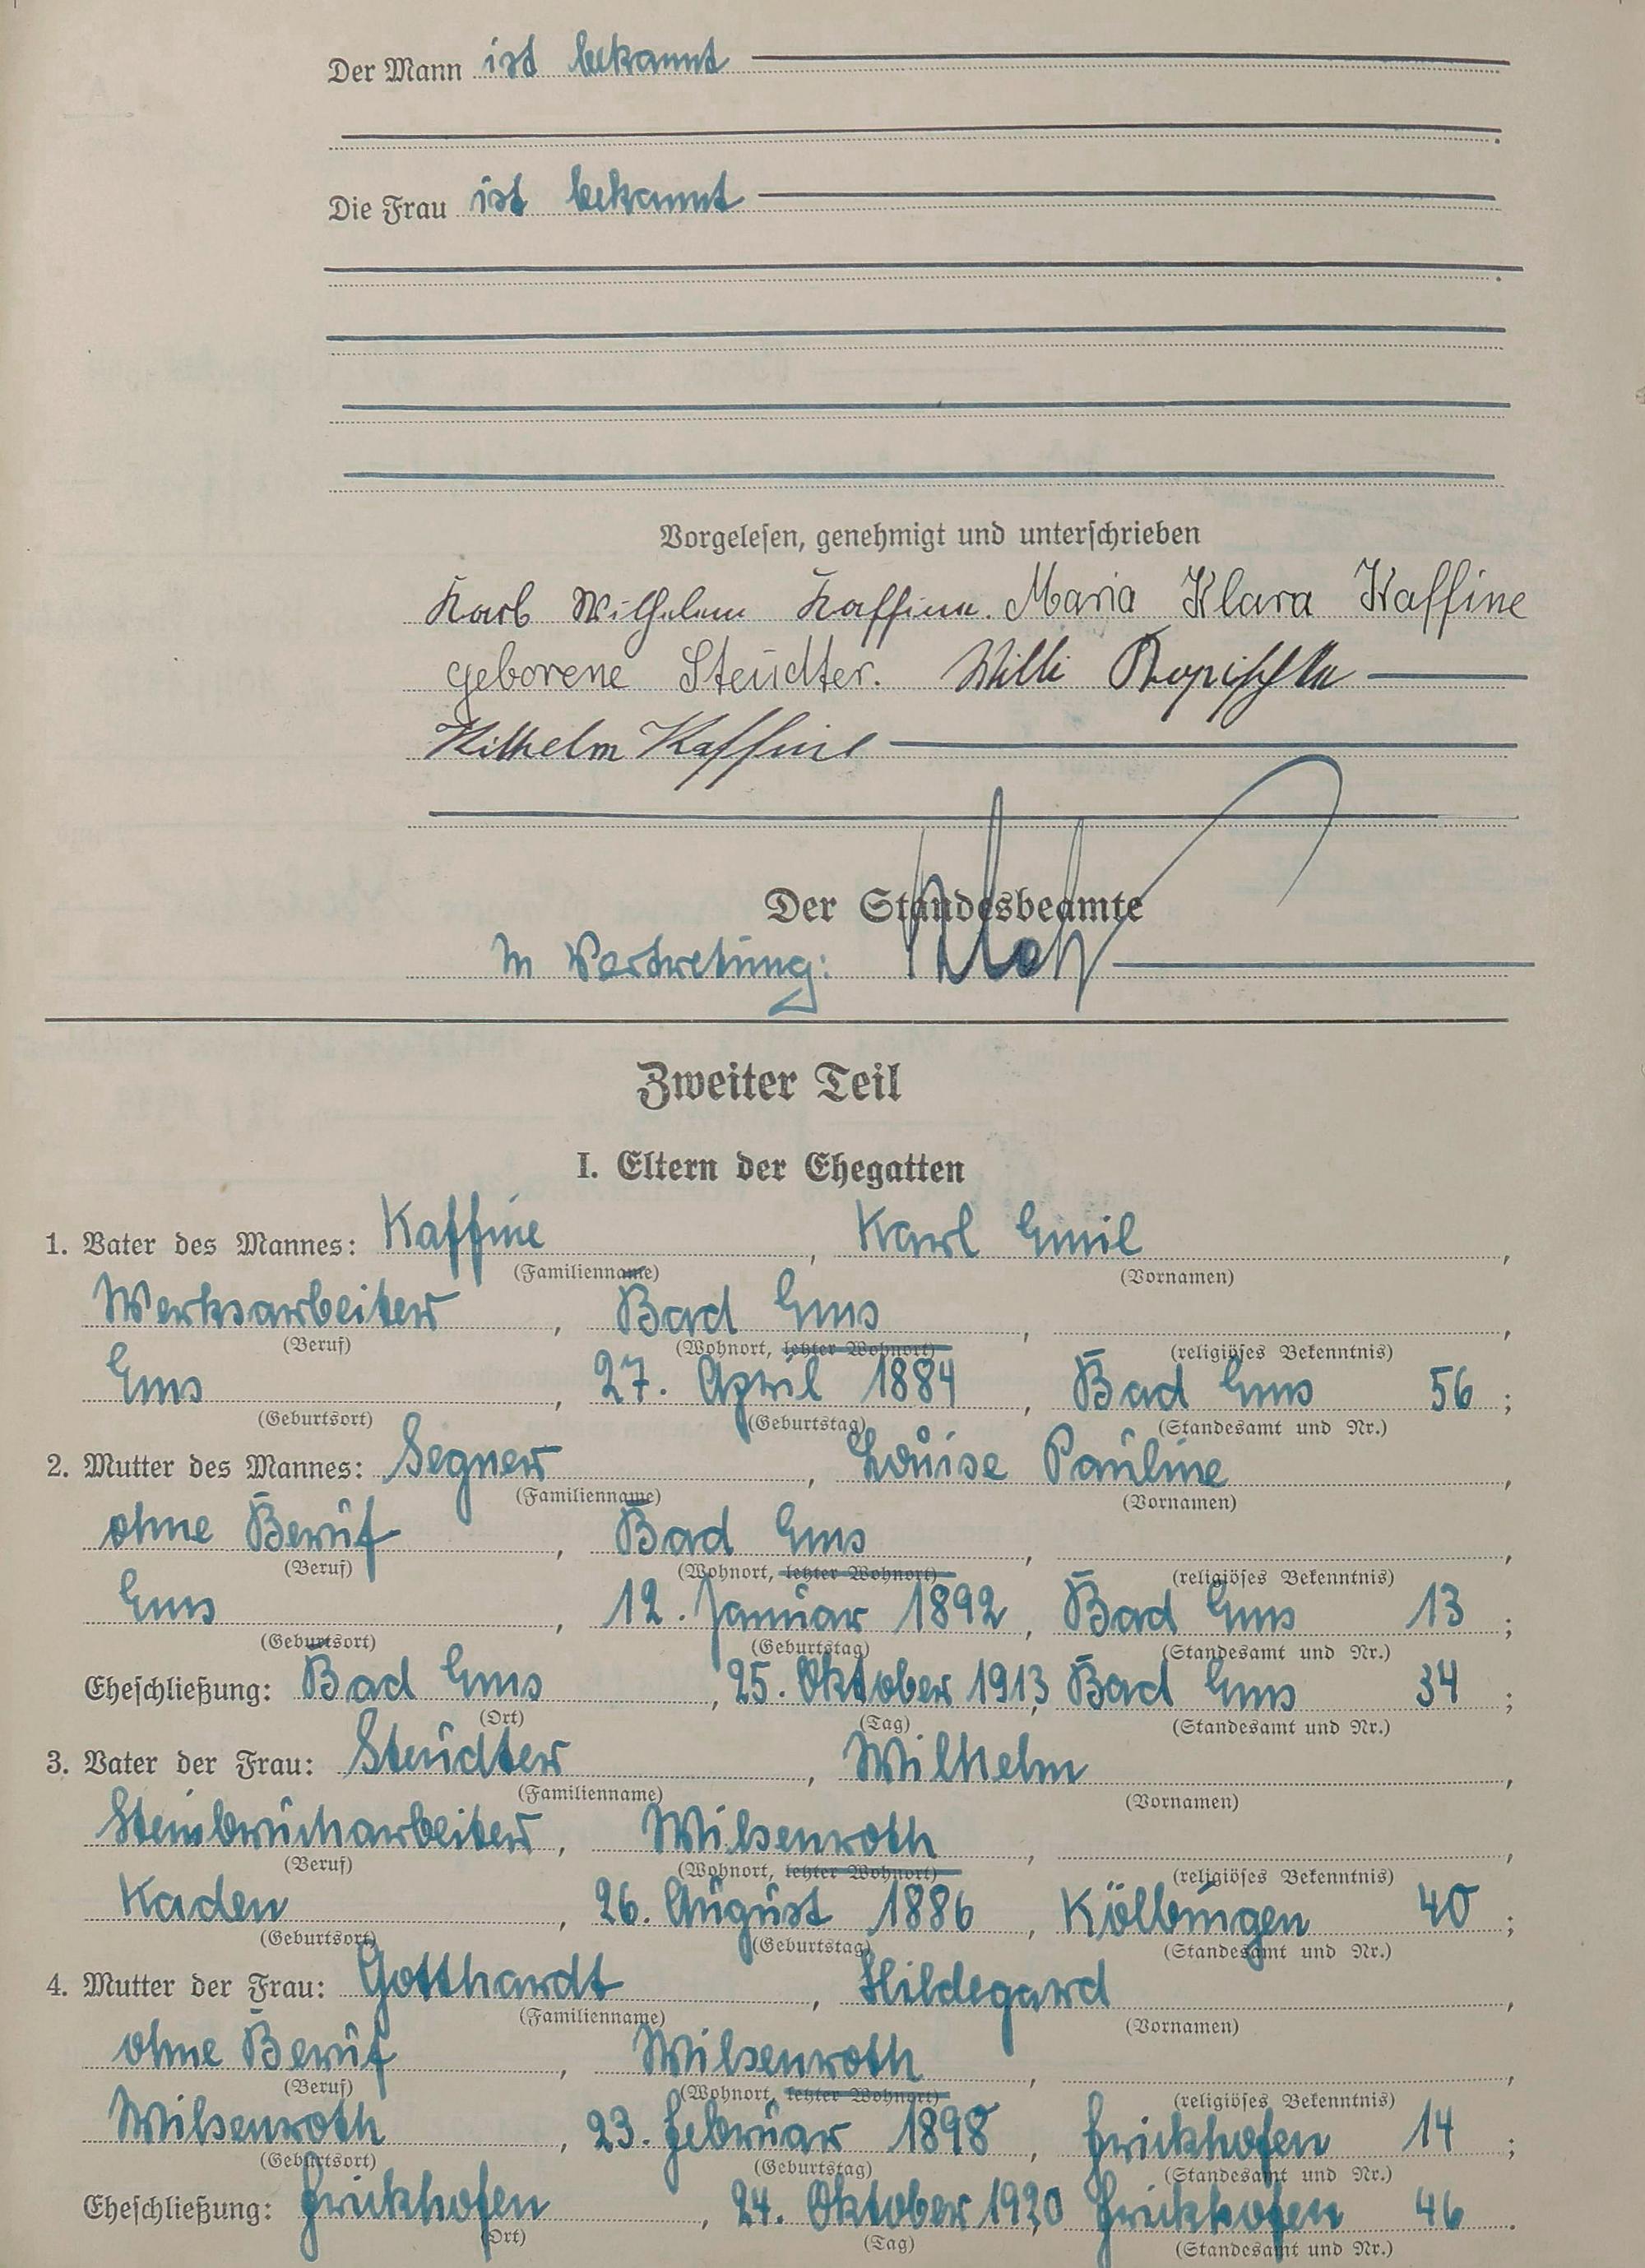 Der Mann ist bekannt
Die Frau ist bekannt
Vorgelesen, genehmigt und unterschrieben
Karl Wilhelm Kaffine. Maria Klara Kaffine
geborene Steudter. Willi
Wilhelm Kaffine
Der Standesbeamte
In Vertretung:
Zweiter Teil
I. Eltern der Ehegatten
1. Vater des Mannes: Kaffine, Karl Emil,
(Familienname) (Vornamen)
Werksarbeiter, Bad Ems, ,
(Beruf) (Wohnort, letzter Wohnort) (religiöses Bekenntnis)
Ems, 27. April 1884, Bad Ems 56;
(Geburtsort) (Geburtstag) (Standesamt und Nr.)
2. Mutter des Mannes: Segner, Louise Pauline,
(Familienname) (Vornamen)
ohne Beruf, Bad Ems, ,
(Beruf) (Wohnort, letzter Wohnort) (religiöses Bekenntnis)
Ems, 12. Januar 1892, Bad Ems 13;
(Geburtsort) (Geburtstag) (Standesamt und Nr.)
Eheschließung: Bad Ems, 25. Oktober 1913, Bad Ems 34;
(Ort) (Tag) (Standesamt und Nr.)
3. Vater der Frau: Steudter, Wilhelm,
(Familienname) (Vornamen)
Steinbrucharbeiter, Wilsenroth, ,
(Beruf) (Wohnort, letzter Wohnort) (religiöses Bekenntnis)
Kaden, 26. August 1886, Kölbingen 40;
(Geburtsort) (Geburtstag) (Standesamt und Nr.)
4. Mutter der Frau: Gotthardt, Hildegard,
(Familienname) (Vornamen)
ohne Beruf, Wilsenroth, ,
(Beruf) (Wohnort, letzter Wohnort) (religiöses Bekenntnis)
Wilsenroth, 23. Februar 1898, Frickhofen 14;
(Geburtsort) (Geburtstag) (Standesamt und Nr.)
Eheschließung: Frickhofen, 24. Oktober 1920, Frickhofen 46.
(Ort) (Tag) (Standesamt und Nr.)